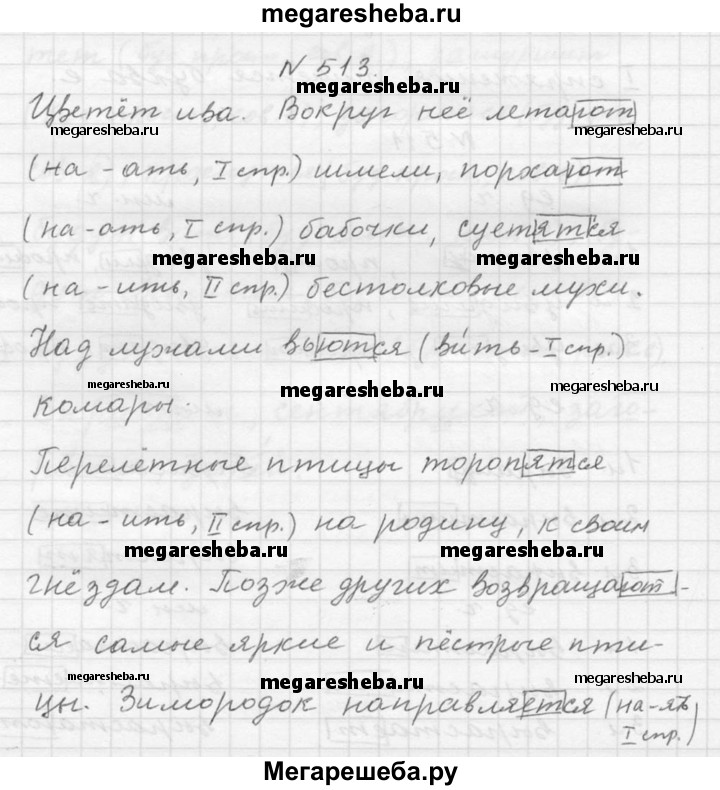 megaresheba.ru
N 513.
megaresheba.ru
Цветёт ива. Вокруг неё летают
megaresheba.ru megaresheba.ru megaresheba.ru
(на - ать, I спр.) шмели, порхают
(на-ать, I спр.) бабочки, суетятся
megaresheba.ru megaresheba.ru
(на - ить, II спр.) бестолковые мухи.
Над лужами вьются (вить - I спр.)
megaresheba.ru megaresheba.ru megaresheba.ru
комары.
Перелётные птицы торопятся
(на - ить, II спр.) на родину, к своим
megaresheba.ru megaresheba.ru
гнёздам. Позже других возвращают-
ся самые яркие и пёстрые пти-
megaresheba.ru megaresheba.ru megaresheba.ru
цы. Зимородок направляется (на-ять
I спр.)
Мегарешеба.ру